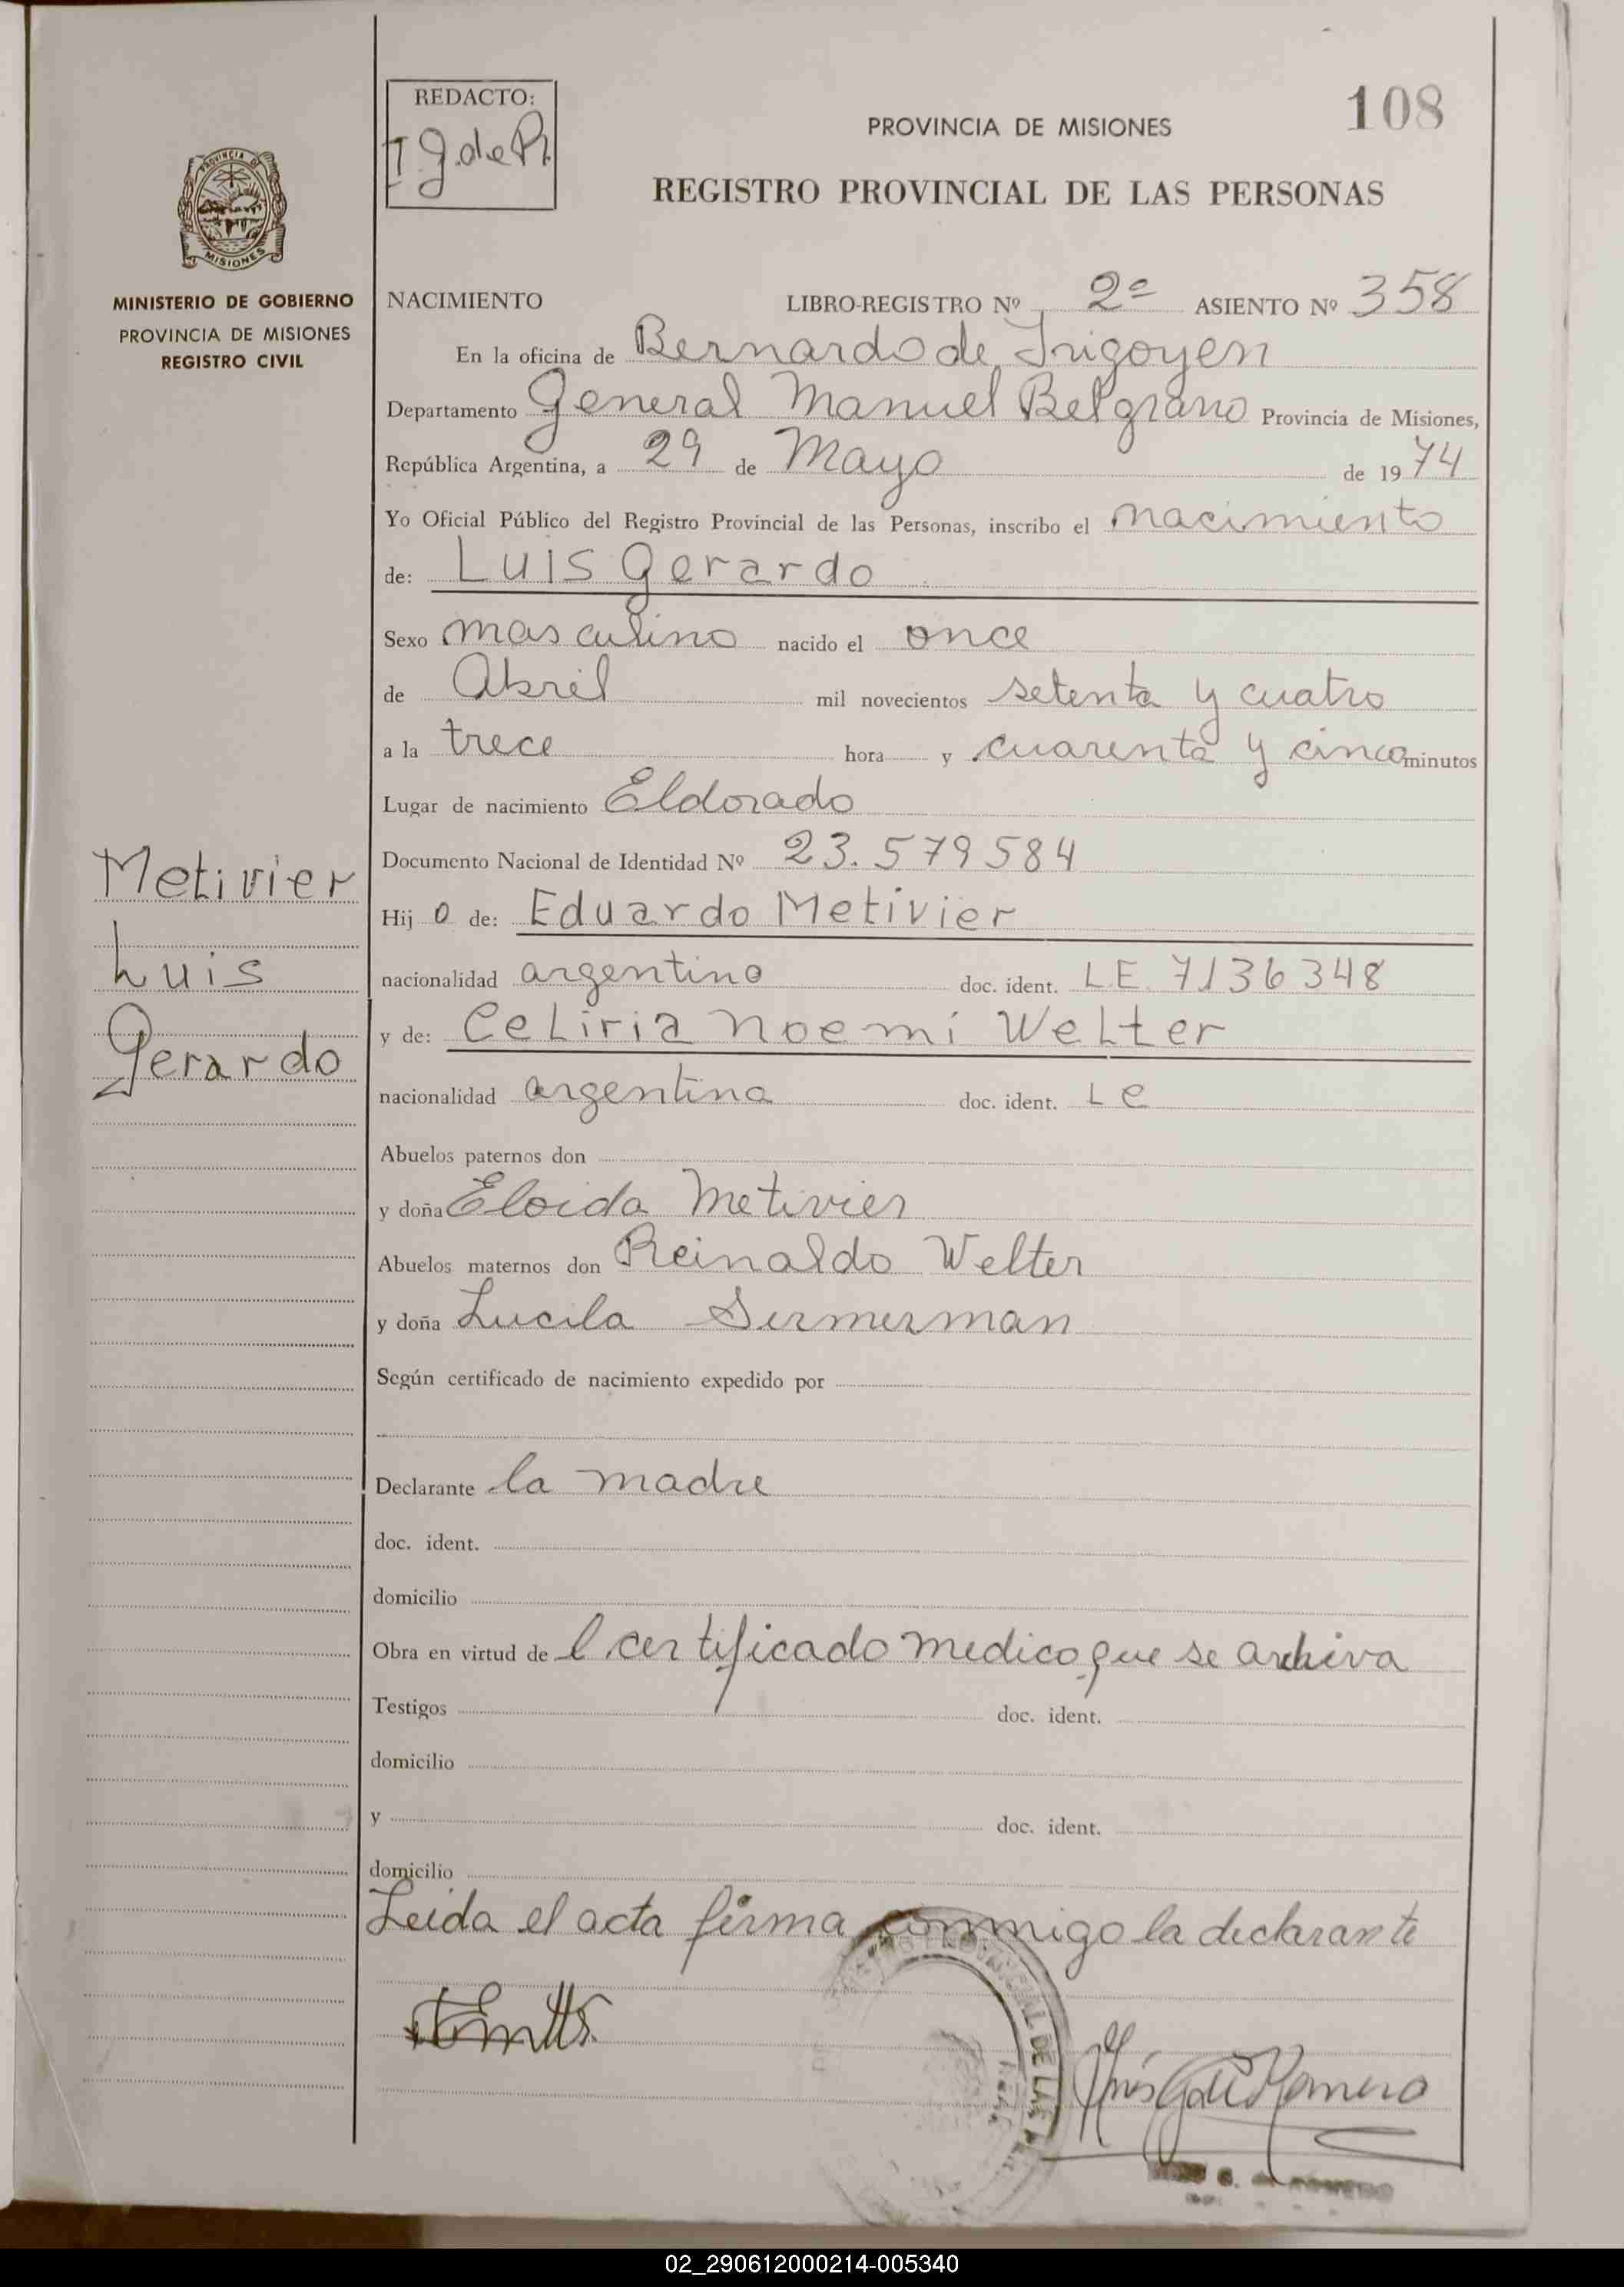 108
REDACTO:
I. G. de R.
PROVINCIA DE MISIONES
REGISTRO PROVINCIAL DE LAS PERSONAS
PROVINCIA DE
MISIONES
MINISTERIO DE GOBIERNO
PROVINCIA DE MISIONES
REGISTRO CIVIL
Metivier
Luis
Gerardo
NACIMIENTO LIBRO-REGISTRO Nº 2º ASIENTO Nº 358
En la oficina de Bernardo de Irigoyen
Departamento General Manuel Belgrano Provincia de Misiones,
República Argentina, a 29 de Mayo de 1974
Yo Oficial Público del Registro Provincial de las Personas, inscribo el nacimiento
de: Luis Gerardo
Sexo masculino nacido el once
de Abril mil novecientos setenta y cuatro
a la trece hora y cuarenta y cinco minutos
Lugar de nacimiento Eldorado
Documento Nacional de Identidad Nº 23.579584
Hijo de: Eduardo Metivier
nacionalidad argentino doc. ident. L.E. 7136348
y de: Celiria Noemi Welter
nacionalidad argentina doc. ident. L C
Abuelos paternos don
y doña Eloida Metivier
Abuelos maternos don Reinaldo Welter
y doña Lucila
Según certificado de nacimiento expedido por
Declarante la madre
doc. ident.
domicilio
Obra en virtud de l certificado medico que se archiva
Testigos doc. ident.
domicilio
y doc. ident.
domicilio
Leida el acta firma conmigo la declarante
DE LAS
02_290612000214-005340